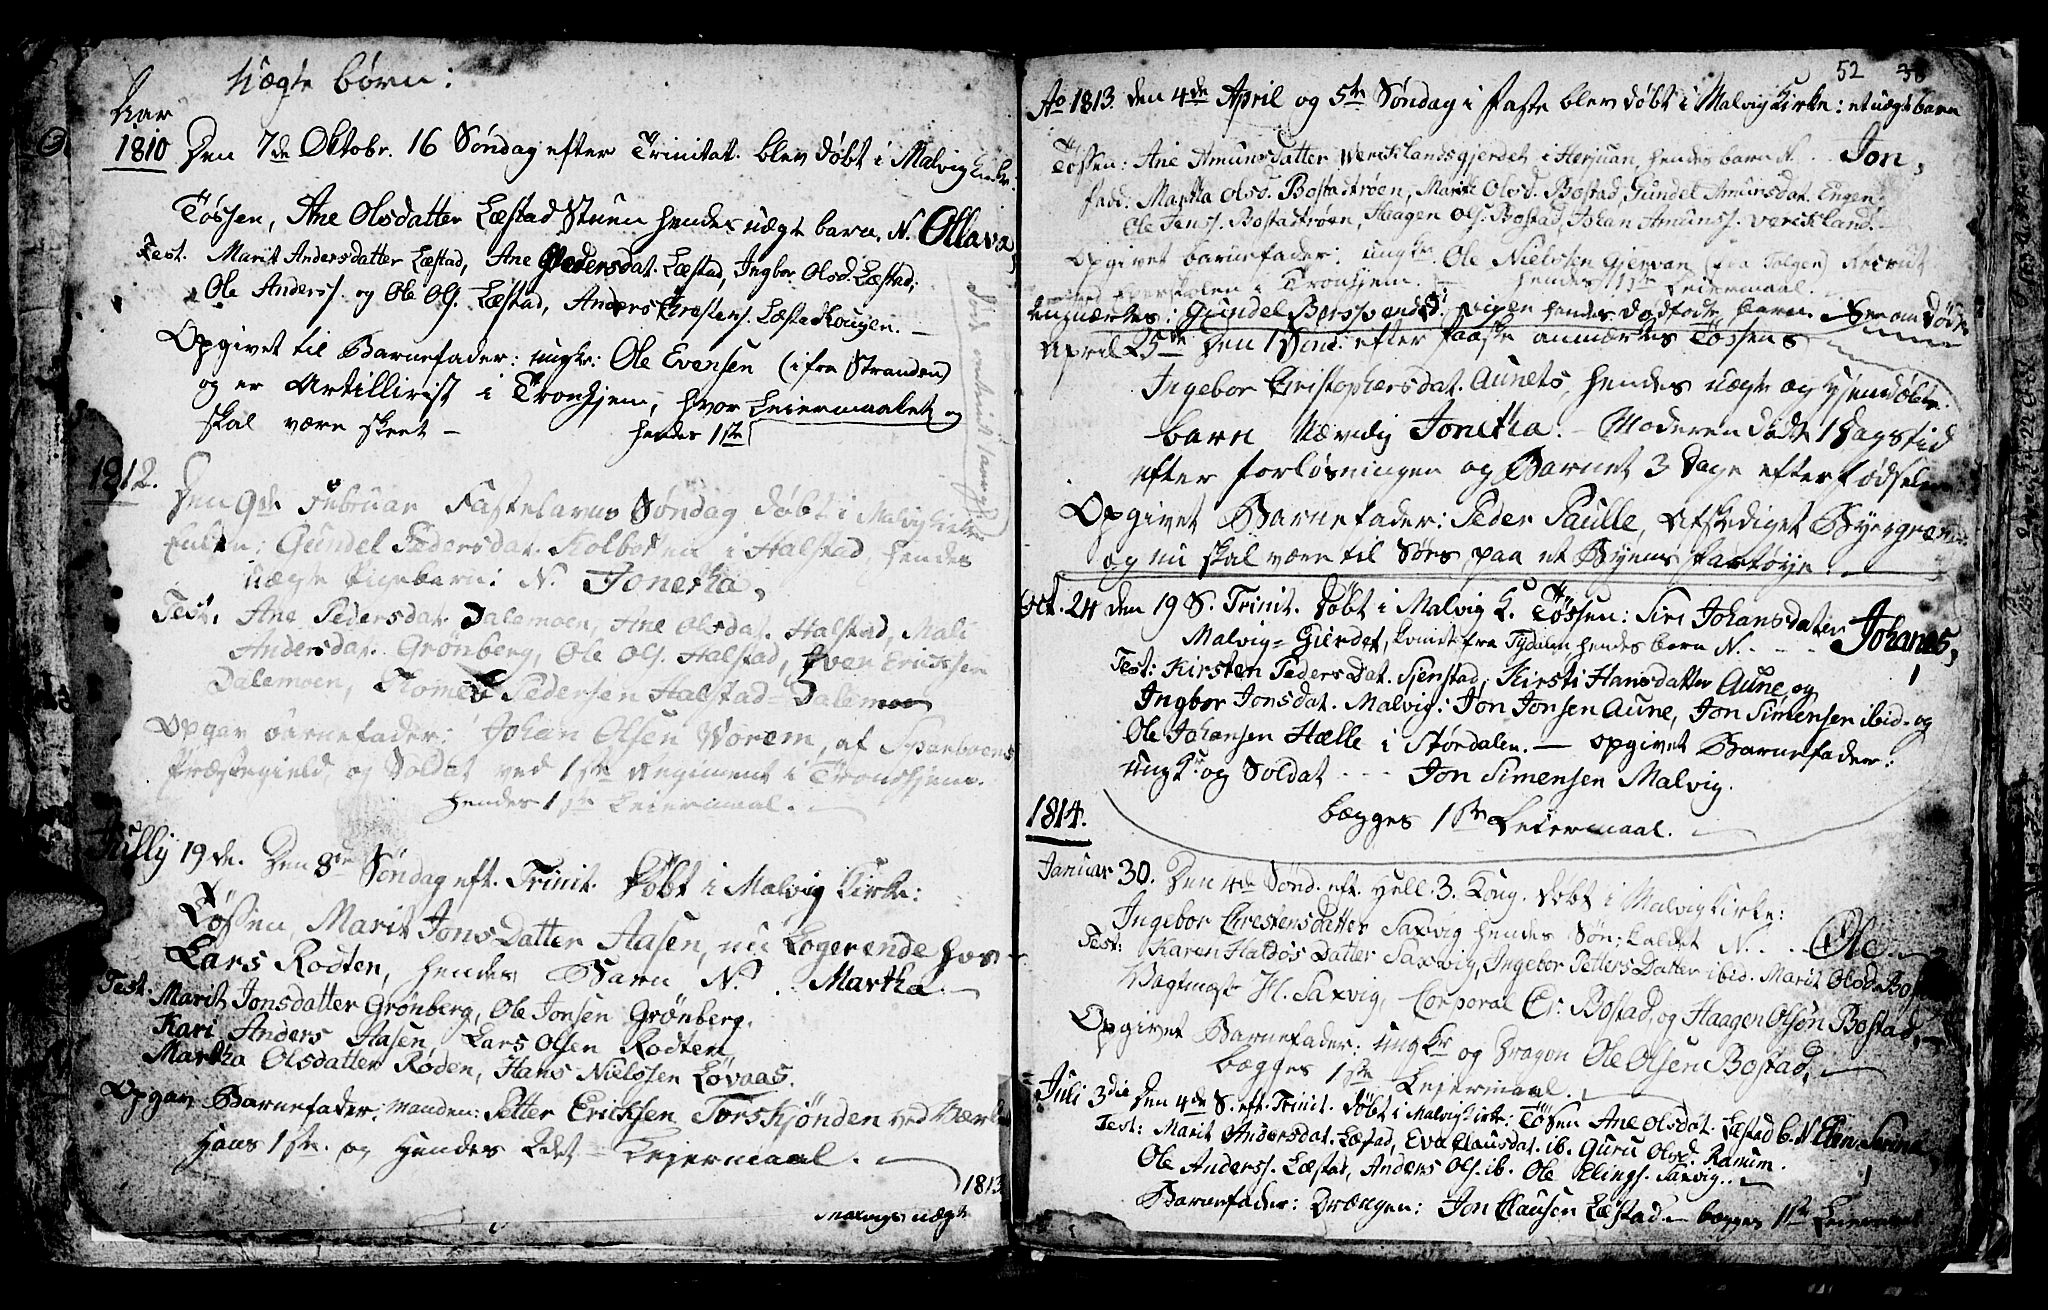 Uægte børn:
Aar
1810 Den 7de Oktobr. 16 Søndag efter Trinitat. blev døbt i Malvig Kirke:
Tøssen, Ane Olsdatter Læstad Stuen hendes uægte barn, N. Ollava,
Test. Marit Andersdatter Læstad, Ane Pedersdat. Læstad, Ingbor Olsd. Læstad,
Ole Anderss. og Ole Ols. Læstad, Anders Chrestens. Læstadhougen. –
Opgivet til Barnefader: ungkr: Ole Evensen (ifra Stranden)
og er Artillirist i Tronhjem, hvor Leiermaalet og
skal være skeet – hendes 1ste
1812. Den 9de Februar Fastelavns Søndag døbt i Malvig Kirke
Enken: Gundel Pedersdat. Kolboten i Halstad, hendes
uægte Pigebarn: N. Jonetha,
Test. Ane Pedersdat. Dalemoen, Ane Olsdat. Halstad, Mali
Andersdat. Grønberg, Ole Ols. Halstad, Even Ericksen
Dalemoen, Pedersen Halstad-Dalemoe
Opgav barnefader: Johan Olsen Worem, af Sparboens
Præstegield, og Soldat ved 1ste Regiment i Tronhjem.
hendes 1ste Leiermaal.
Jully 19de. Den 8de Søndag eft. Trinit. Døbt i Malvig Kirke:
Tøssen, Marit JonsDatter Aasen, nu Logerende hos
Lars Rodten, hendes Barn N. Martha
Test. Marit Jonsdatter Grønberg, Ole Jonsen Grønberg.
Kari Anders Aasen, Lars Olsen Rodten
Martha Olsdatter Røden, Hans Nielssen Løvaas.
Opgav Barnefader: Manden: Petter Ericksen Torskjønden ved
Hans 1ste. og Hendes 2det Leiermaal.
1813
uægte
52
Ao 1813. den 4de April og 5te Søndag i Faste blev døbt i Malvig Kirke: et uægte barn
Tøssen: Ane Amunsdatter Wercklandsgjerdet i Herjuan, hendes barn N. Jon,
fadd. Martha Olsd. Bostadtrøen, Marit Olsd. Bostad, Gundel Amunsdat. Engen
Ole Jens. Bostadtrøen, Haagen Ols. Bostad, Johan Amuns. Verckland.
Opgivet barnefader: ungkr. Ole Nielssen Gjervan (fra Tolgen) Recrut
i Tronhjem. – hendes 1ste Leiermaal.
Anmærkes: Gundel pigen hendes dødfødte barn. See om døde
April 25de Den 1 Sønd. efter Paaske anmærkes Tøssens
Ingebor Cristophersdat. Aunets, hendes uægte og hjemmedøbte
barn Nævnlig Jonetha. – Moderen døde 1 Dags tid
efter forløsningen og Barnet 3 Dage efter fødselen
Opgivet Barnefader: Peder Paulle, Afskediget
og nu skal være til Søes paa et Byens fartøye.
Oct. 24 den 19 S. Trinit. Døbt i Malvig K. Tøssen: Siri Johansdatter
Malvig-Gierdet, komit fra Tydalen, hendes barn N. Johanes,
Test: Kirsten PedersDat. Sjenstad, Kirsti Hansdatter Aune, og
Ingbor Jonsdat. Malvig: Jon Jonsen Aune, Jon Simensen ibid. og
Ole Johansen Hælle i Størdalen. – opgivet Barnefader:
ungk. og Soldat - - - Jon Simensen Malvig.
begges 1ste Leiermaal.
1814.
Januar 30. Den 4de Sønd. eft. Hell. 3 Kong. Døbt i Malvig Kirke:
Ingebor Chrestensdatter Saxvig hendes Søn; kaldet N. Ole
Test: Karen HaldosDatter Saxvig, Ingebor PettersDatter ibid. Marit Olsd. Bostad
Vagtmest. H. Saxvig, Corporal Bostad, og Haagen Olsøn Bostad,
Opgivet Barnefader: ungkr og Dragon Ole Olsen Bostad,
begges 1ste Leiermaal.
Juli 3die Den 4de S. eft. Trinit. Døbt i Malvig Kirke. Tøsen Ane Olsdat. Læstad b. N.
Test: Marit Andersdat. Læstad, Eva Clausdat. ib. Guru Olsd. Ranum.
Ole Anderss. Læstad, Anders Ols. ib. Ole Elings. Saxvig.
Barnefader: Drængen: Jon Clausen Læstad – begges 1ste Leiermaal